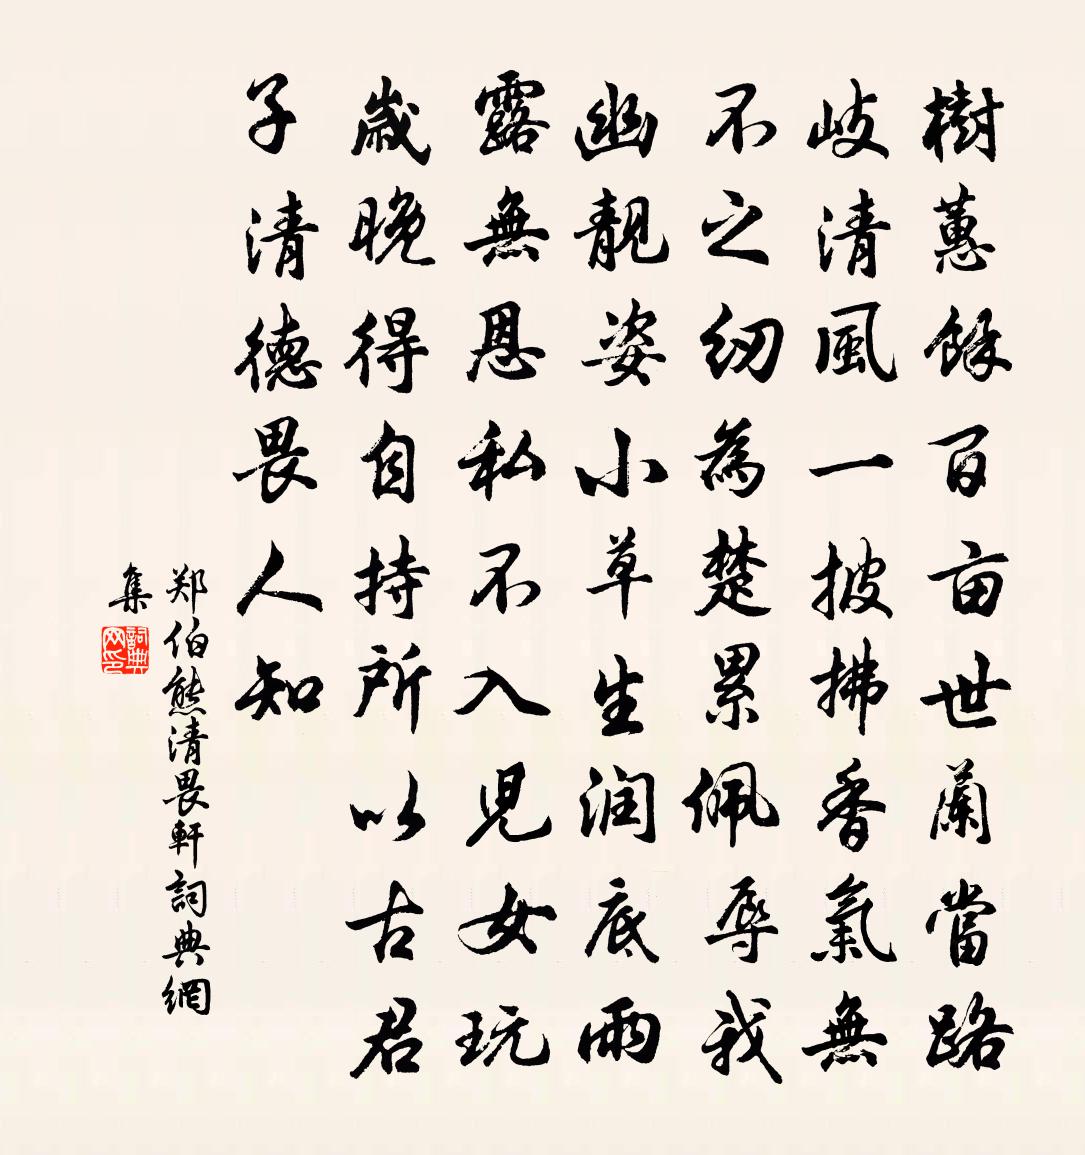 樹蕙餘百亩世蘭當路
岐清風一披拂香氣無
不之纫為楚累佩辱我
幽靚姿小草生润底雨
露無恩私不入児女玩
歲晚得自持所以古君
子清德畏人知
郑伯熊清畏軒詞典網
集
詞典网印